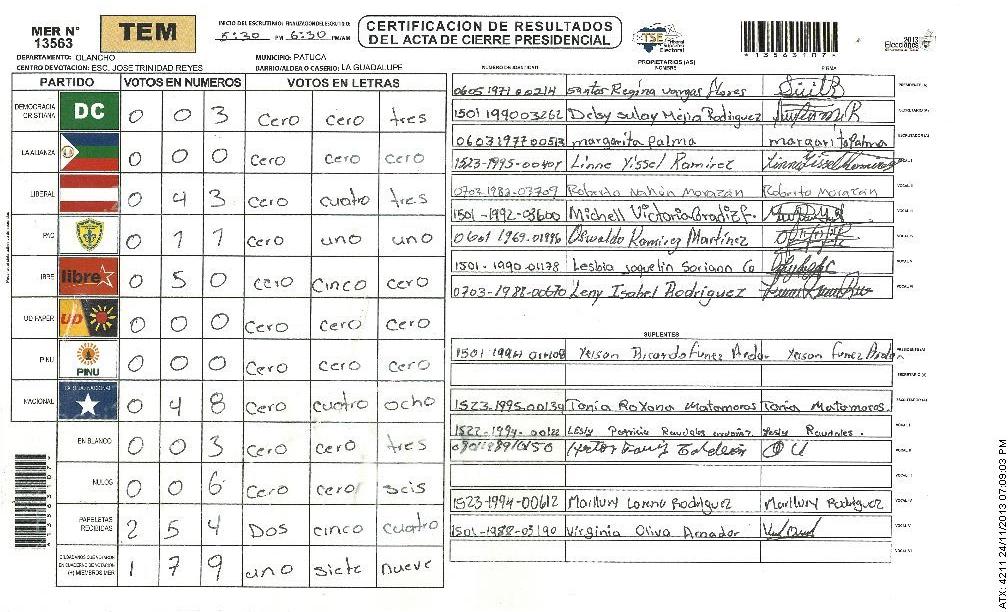 MER N° 13563
TEM
INICIO DEL ESCRUTINIO: 5:30 PM 6:30 PM/AM
CERTIFICACION DE RESULTADOS
DEL ACTA DE CIERRE PRESIDENCIAL
TSE Tribunal Supremo Electoral
2013 Elecciones
*13563107*
DEPARTAMENTO: OLANCHO
MUNICIPIO: PATUCA
CENTRO DE VOTACION: ESC. JOSE TRINIDAD REYES
BARRIO/ALDEA O CASERIO: LA GUADALUPE
PARTIDO VOTOS EN NUMEROS VOTOS EN LETRAS
DEMOCRACIA CRISTIANA DC 0 0 3 cero cero tres
LA ALIANZA 0 0 0 cero cero cero
LIBERAL 0 4 3 cero cuatro tres
PAC 0 1 1 cero uno uno
LIBRE libre 0 5 0 cero cinco cero
UD FAPER UD 0 0 0 cero cero cero
PINU PINU 0 0 0 cero cero cero
NACIONAL 0 4 8 cero cuatro ocho
EN BLANCO 0 0 3 cero cero tres
NULOS 0 0 6 cero cero seis
PAPELETAS RECIBIDAS 2 5 4 Dos cinco cuatro
(+) MIEMBROS MER 1 7 9 uno siete nueve
PROPIETARIOS (AS)
NOMBRE FIRMA
0605 1971 00214 Santos Regina Vargas flores
1501 199003262 Deby Sulay Mejia Rodriguez
0603197700513 margarita Palma margarita Palma
1523-1995-00407 Linne Yissel Ramirez
0703-1982-03709 Roberto Nahún Morazán Roberto Morazán
1501-1992-03600 Michell Victoria
0601 1969-01996 Oswaldo Ramirez Martínez
1501-1990-01178 Lesbia Joquelin Soriano
0703-1988-00670 Leny Isabel Rodriguez
SUPLENTES
Yeison Ricardo Funez Yeison Funez
1523-1995-00139 Tania Roxana Matamoros Tania Matamoros.
1522-1994-00122 Lesly Patricia
1523-1994-00612 Marllury Lorena Rodriguez Marllury Rodriguez
1501-1988-03190 Virginia Oliva Amador
*13563107*
ATX: 4211 24/11/2013 07:09:03 PM